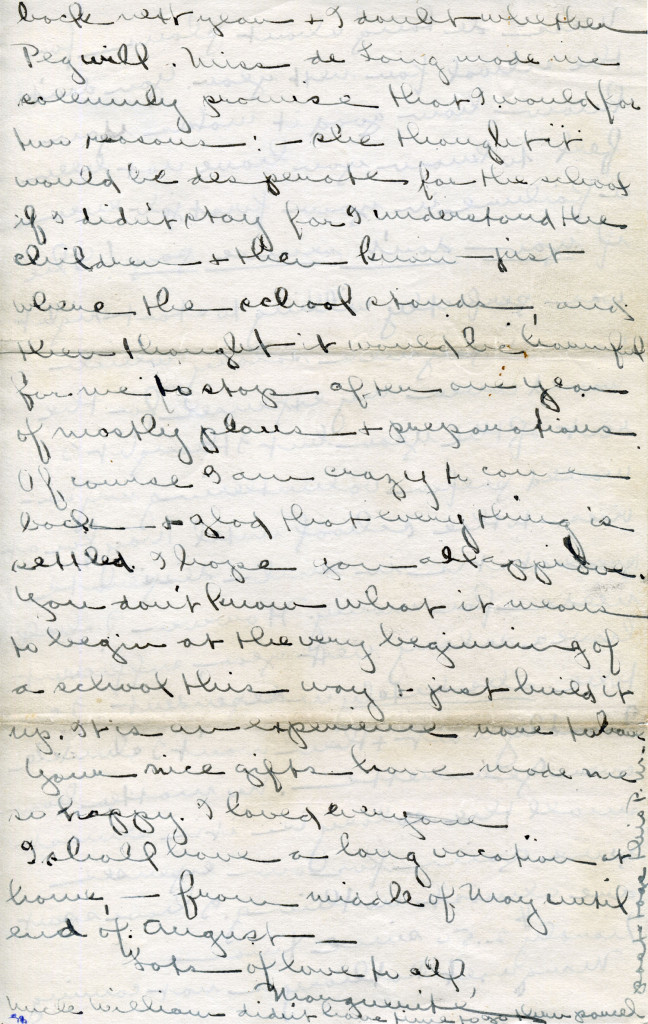 back next year + I doubt whether
Peg will. Miss de Long made me
solemnly promise that I would for
two reasons: - she thought it
would be desperate for the school
if I didn't stay for I understand the
children + then know just
where the school stands, and
then thought it would be harmful
for me to stop after one year
of mostly plans + preparations.
Of course I am crazy to come
back + glad that everything is
settled. I hope you all approve.
You don't know what it means
to begin at the very beginning of
a school this way + just build it
up. It is an experience rare to have
Your nice gifts have made me
so happy. I loved everyone
I shall have a long vacation at
home, - from middle of May until
end of August —
Lots of love to all,
Marguerite
Uncle William didn't have time to